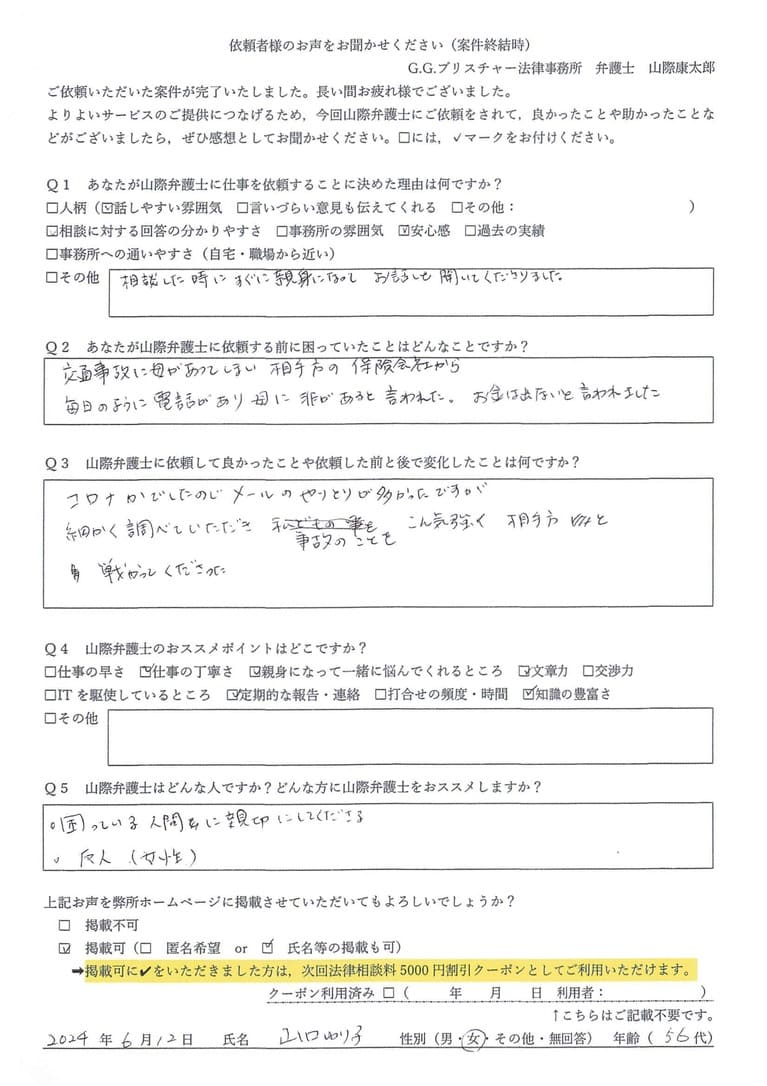 依頼者様のお声をお聞かせください（案件終結時）
G.G.ブリスチャー法律事務所　弁護士　山際康太郎
ご依頼いただいた案件が完了いたしました。長い間お疲れ様でございました。
よりよいサービスのご提供につなげるため，今回山際弁護士にご依頼をされて，良かったことや助かったことな
どがございましたら，ぜひ感想としてお聞かせください。□には，✓マークをお付けください。
Ｑ１　あなたが山際弁護士に仕事を依頼することに決めた理由は何ですか？
□人柄（☑話しやすい雰囲気　□言いづらい意見も伝えてくれる　□その他：　　　　　　　　　　）
☑相談に対する回答の分かりやすさ　□事務所の雰囲気　☑安心感　□過去の実績
□事務所への通いやすさ（自宅・職場から近い）
□その他　相談した時に すぐに親身になって お話しを 聞いてくださりました。
Ｑ２　あなたが山際弁護士に依頼する前に困っていたことはどんなことですか？
交通事故に母があってしまい 相手方の 保険会社から
毎日のように電話があり 母に 非があると言われた。 お金は出ないと言われました
Ｑ３　山際弁護士に依頼して良かったことや依頼した前と後で変化したことは何ですか？
コロナかでしたので メールの やりとりが多かったですが
細かく調べていただき 私どもの事を こん気強く 相手方
事故のことを
戦かってくださった
Ｑ４　山際弁護士のおススメポイントはどこですか？
□仕事の早さ　☑仕事の丁寧さ　☑親身になって一緒に悩んでくれるところ　☑文章力　□交渉力
□ITを駆使しているところ　☑定期的な報告・連絡　□打合せの頻度・時間　☑知識の豊富さ
□その他
Ｑ５　山際弁護士はどんな人ですか？どんな方に山際弁護士をおススメしますか？
○困っている 人間 に親切 にしてくださる
○ 友人（女性）
上記お声を弊所ホームページに掲載させていただいてもよろしいでしょうか？
□　掲載不可
☑　掲載可（□　匿名希望　or　☑　氏名等の掲載も可）
➡掲載可に✔をいただきました方は，次回法律相談料 5000 円割引クーポンとしてご利用いただけます。
クーポン利用済み　□（　　　年　　月　　日　利用者：　　　　　　　）
↑こちらはご記載不要です。
2024 年 6 月 12 日　氏名　山口ゆり子　性別（男・女・その他・無回答）　年齢（ 56 代）